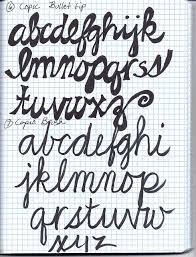 ⑥ Copic Bullet tip
abcdefghijk
lmnopqrsst
tuvwxz
⑦ Copic Brush
abcdefghi
jklmnop
qrstuvw
xyz